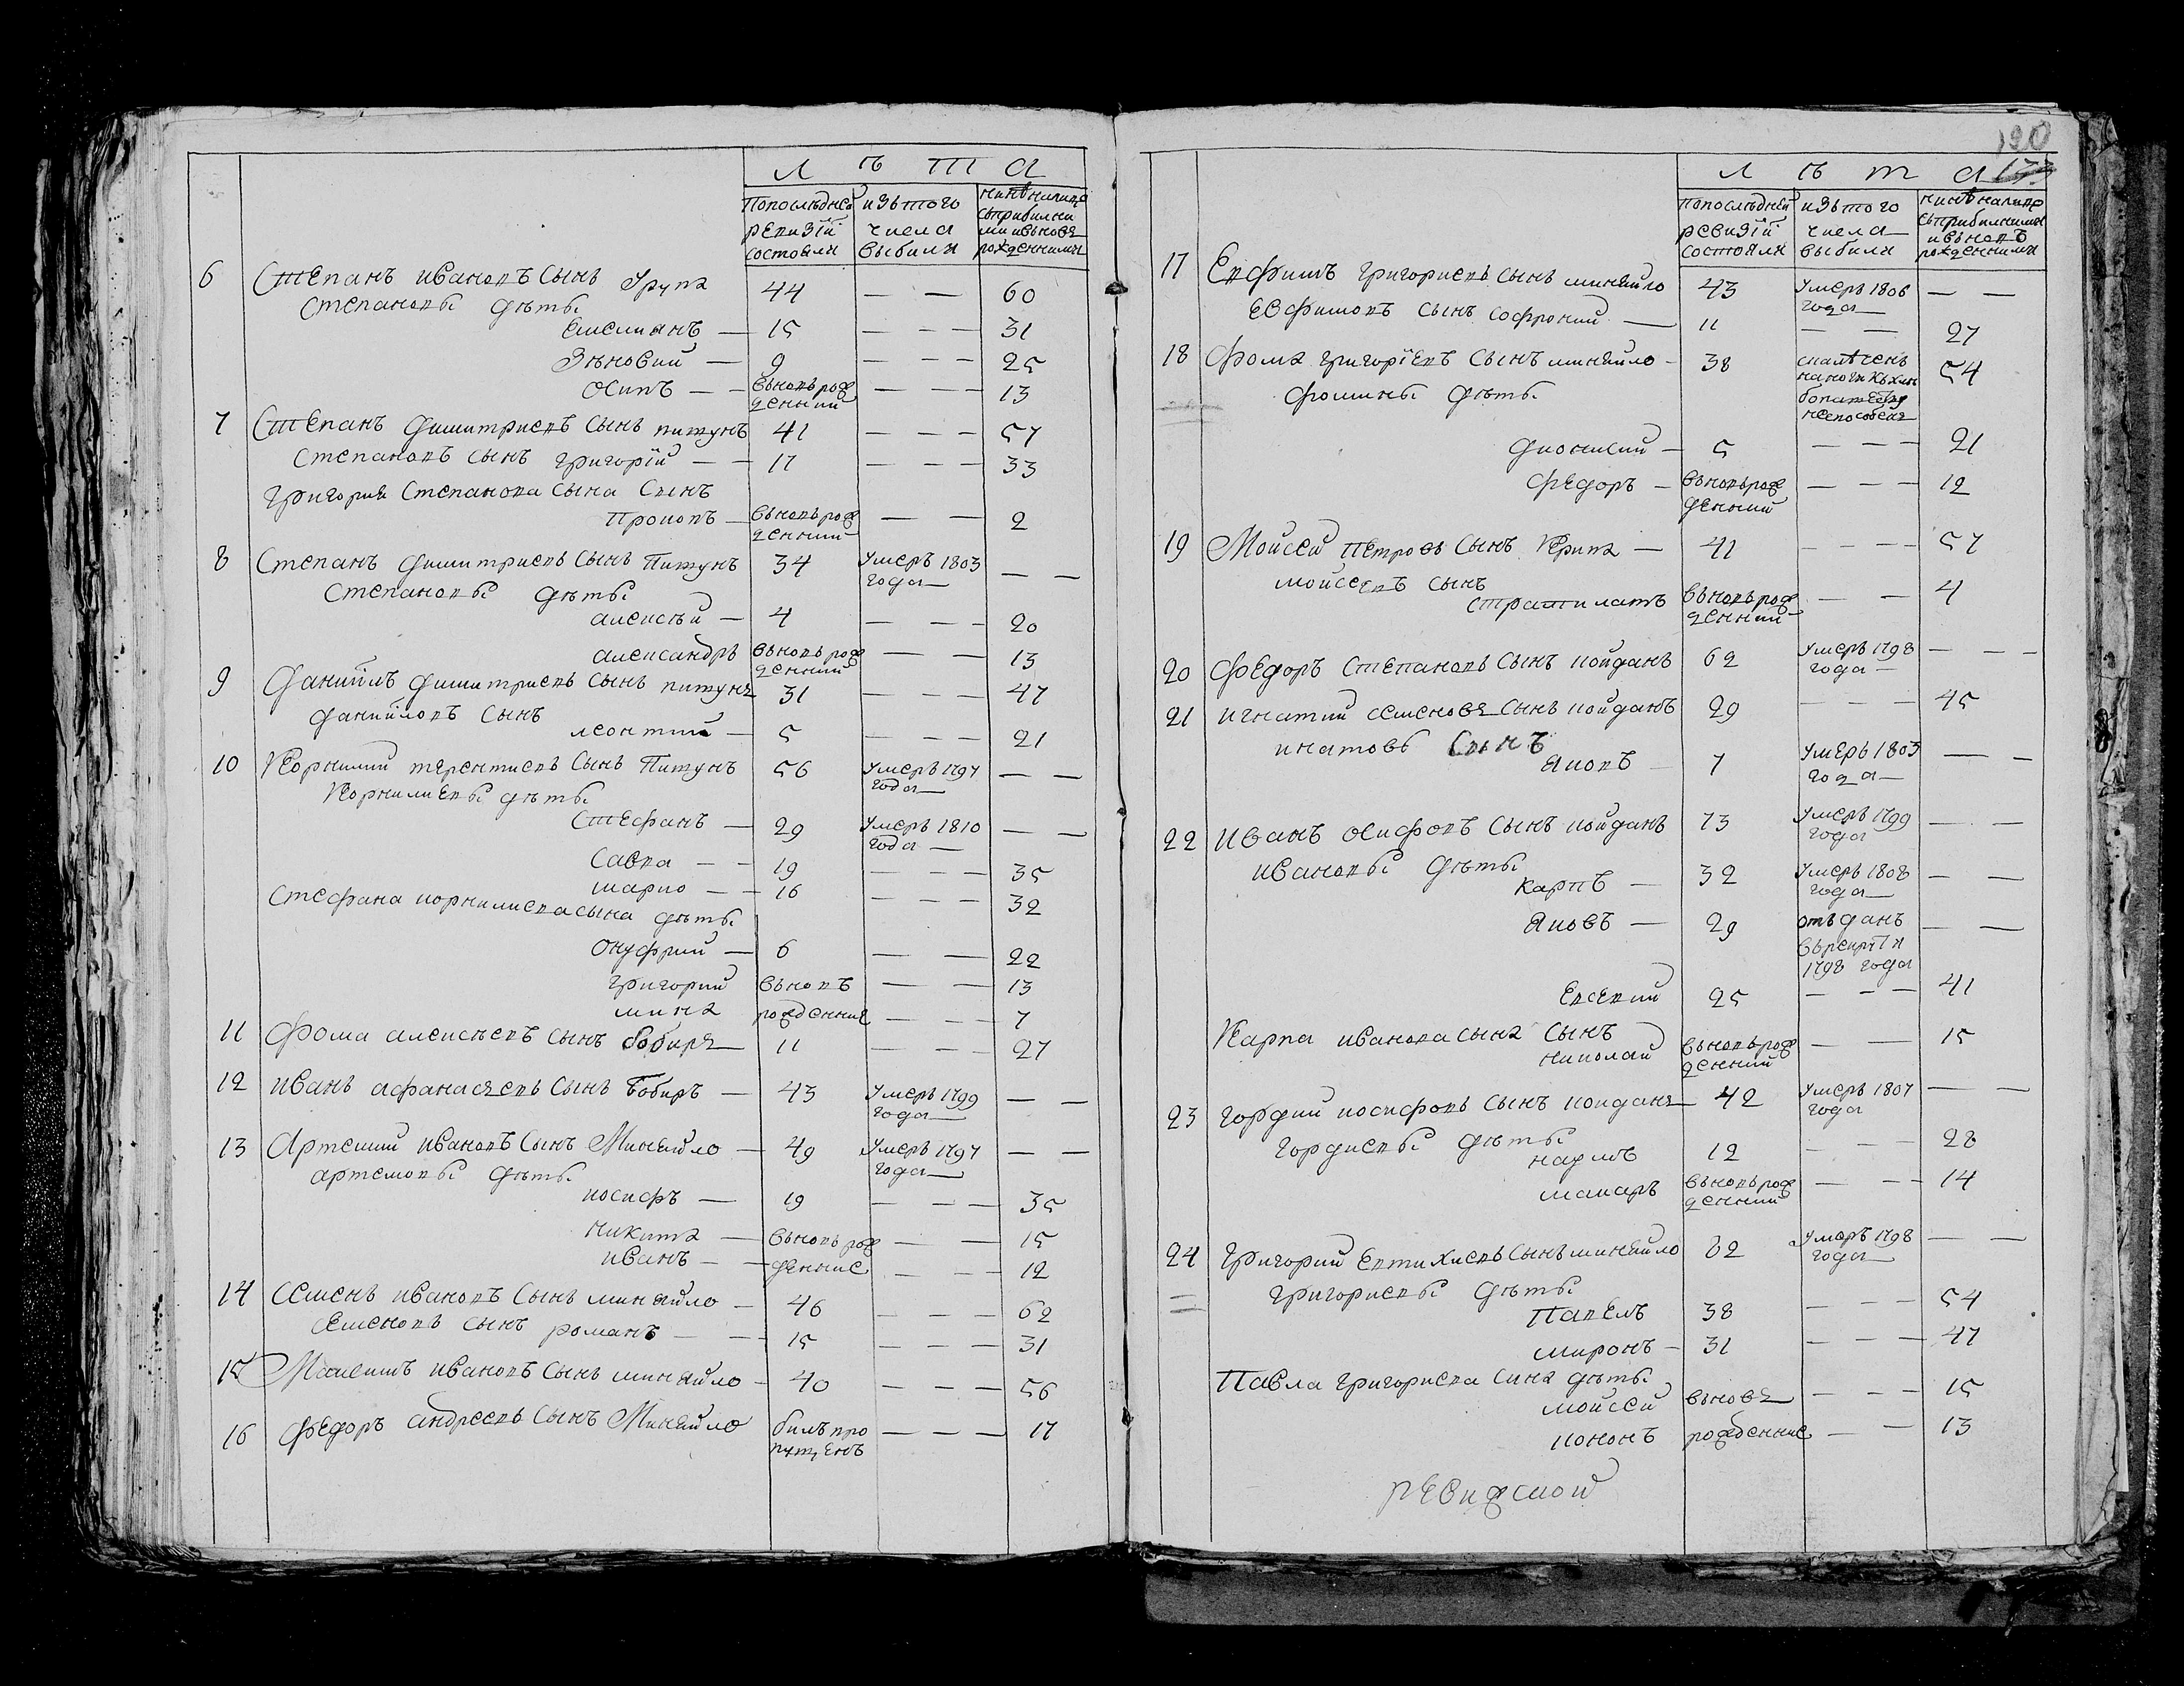 Л ѣ т а
По последней ревизіи состояли
изъ того числа выбыли
ныне налицо съ прибылими и вновь рожденными
6 Степанъ Ивановъ Сынъ 44 — — 60
Степановы дѣты
Емелианъ — 15 — — — 31
Зѣновий — 9 — — — 25
Осипъ — — вновь рож денний — — — 13
7 Степанъ Димитриевъ Сынъ Питунъ 41 — — — 57
Степановъ Сынъ Григорій — — 17 — — — 33
Григория Степанова Сына Сынъ
Прокопъ — вновь рож денний — — 2
8 Степанъ Димитриевъ Сынъ Питунъ 34 Умеръ 1803 года — — —
Степановы дѣты
Алексѣй — 4 — — — 20
Александръ вновь рож денний — — 13
9 Данийлъ Димитриевъ Сынъ Питунъ 31 — — — 47
Данийловъ Сынъ
Леонтий — 5 — — — 21
10 Корнилий Терентиевъ Сынъ Питунъ 56 Умеръ 1797 года — — —
Корнилиевы дѣты
Стефанъ — 29 Умеръ 1810 года — — —
Савка — — 19 — — — 35
Марко — — 16 — — — 32
Стефана Корнилиева сына дѣты
Онуфрий — 6 — — 22
Григорий вновь — — 13
Мина рожденние — — — 7
11 Фома Алексѣевъ Сынъ Бобирь — 11 — — — 27
12 Иванъ Афанасиевъ Сынъ Бобиръ — 43 Умеръ 1799 года — — —
13 Артемий Ивановъ Сынъ Миняйло — 49 Умеръ 1797 года — — —
Артемовы дѣты
Иосифъ — 19 — — — 35
Никита — вновь рож — — 15
Иванъ — — денние — — 12
14 Семенъ Ивановъ Сынъ Миняйло — 46 — — — 62
Семеновъ Сынъ Романъ — — 15 — — — 31
15 Максимъ Ивановъ Сынъ Миняйло — 40 — — — 56
16 Федоръ Андреевъ Сынъ Миняйло билъ про пущенъ — — — 17
190
Л ѣ т а
По последней ревизіи состояли
изъ того числа выбили
ныне налицо съ прибилими и вновь рожденними
17 Евфимъ Григориевъ Сынъ Миняйло 43 Умеръ 1806 года — — —
Евфимовъ Сынъ Софроний — 11 — — 27
18 Фома Григоріевъ Сынъ Миняйло — 38 54
Фомины дѣты
Дионисий — 5 — — — 21
Федоръ — вновь рож денний — — — 12
19 Мойсей Петровъ Сынъ Крипа — 41 — — — 57
Мойсеевъ Сынъ
Стратилатъ вновь рож денний — — 4
20 Федоръ Степановъ Сынъ Койданъ 62 Умеръ 1798 года — — — —
21 Игнатий Семеновъ Сынъ Койданъ 29 — — — 45
Инатовъ Сынъ
Яковъ — 7 Умеръ 1803 года — — —
22 Иванъ Осифовъ Сынъ Койданъ 73 Умеръ 1799 года — —
Ивановы дѣты
Карпъ — 32 Умеръ 1808 года — — —
Яковъ — 29 отъданъ въ рекрути 1798 года — —
Евсевий 25 — — — 41
Карпа Иванова Сына Сынъ
Николай вновь рож денний — — 15
23 Гордий Иосифовъ Сынъ Койданъ — 42 Умеръ 1807 года — —
Гордиевы дѣты
Наумъ 12 — — — 28
Макаръ вновь рож денний — — — 14
24 Григорий Евтихиевъ Сынъ Миняйло 62 Умеръ 1798 года — — —
Григориевы дѣты
Павелъ 38 — — — 54
Миронъ — 31 — — — 47
Павла Григориева Сина дѣты
Мойсей вновь — — — 15
Кононъ рожденние — — 13
Ревизской